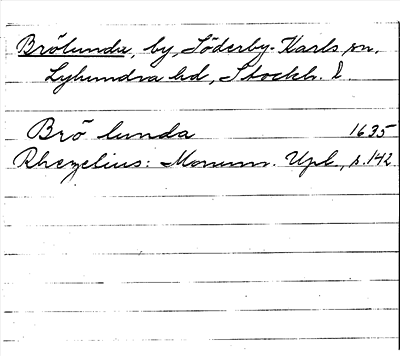 Brölunda, by, Söderby-Karls sn,
Lyhundra hd, Stockh. l.
Brö lunda 1635
Rhezelius: Monum. Upl., s. 142